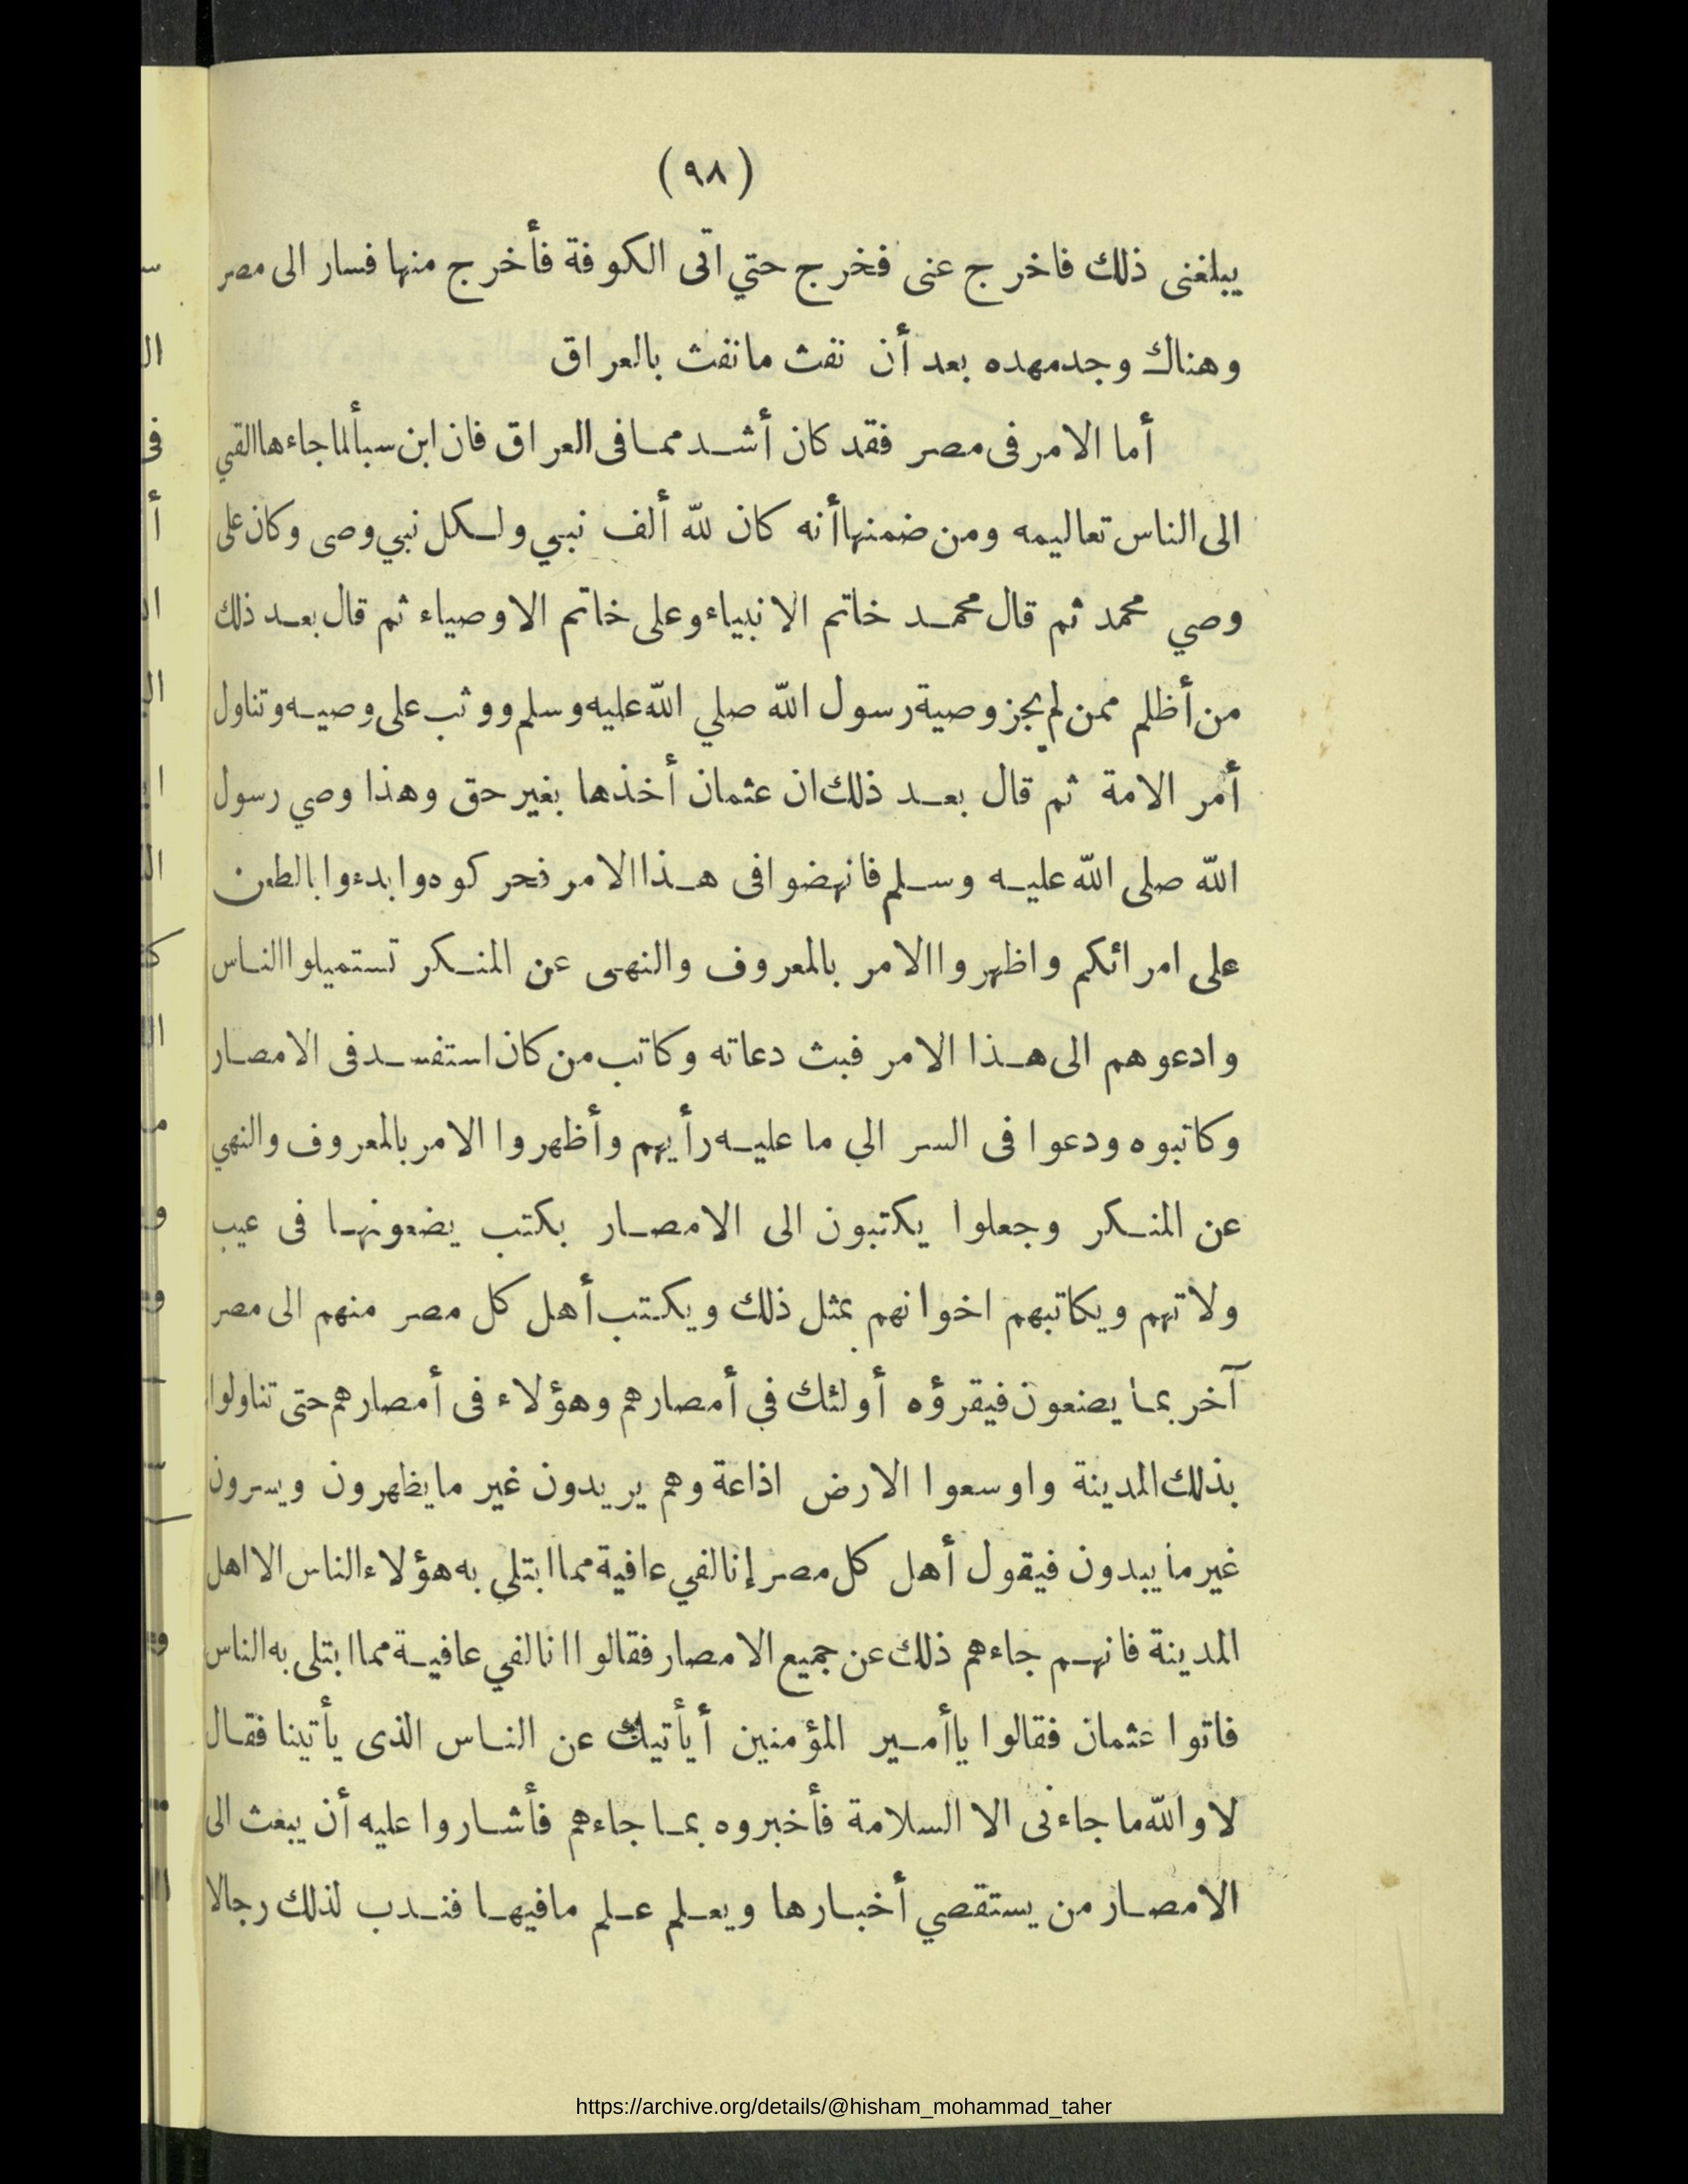 (٩٨)
يبلغنى ذلك فاخرج عنى فخرج حتي اتى الكوفة فأخرج منها فسار الى مصر
وهناك وجدمهده بعد أن نفث مانفث بالعراق
أما الامر فى مصر فقد كان أشد مما فى العراق فان ابن سبأ لما جاءها القي
الى الناس تعاليمه ومن ضمنها أنه كان لله ألف نبي ولكل نبي وصى وكان على
وصي محمد ثم قال محمد خاتم الانبياء وعلى خاتم الاوصياء ثم قال بعد ذلك
من أظلم ممن لم يجز وصية رسول الله صلي الله عليه وسلم ووثب على وصيه وتناول
أمر الامة ثم قال بعد ذلك ان عثمان أخذها بغير حق وهذا وصي رسول
الله صلى الله عليه وسلم فانهضوا فى هذا الامر فحركوه وابدءوا بالطعن
على امرائكم واظهروا الامر بالمعروف والنهى عن المنكر تستميلوا الناس
وادعوهم الى هذا الامر فبث دعاته وكاتب من كان استفسد فى الامصار
وكاتبوه ودعوا فى السر الي ما عليه رأيهم وأظهروا الامر بالمعروف والنهي
عن المنكر وجعلوا يكتبون الى الامصار بكتب يضعونها فى عيب
ولاتهم ويكاتبهم اخوانهم بمثل ذلك ويكتب أهل كل مصر منهم الى مصر
آخر بما يصنعون فيقرؤه أولئك في أمصارهم وهؤلاء فى أمصارهم حتى تناولوا
بذلك المدينة واوسعوا الارض اذاعة وهم يريدون غير ما يظهرون ويسرون
غير ما يبدون فيقول أهل كل مصر إنا لفي عافية مما ابتلي به هؤلاء الناس الا اهل
المدينة فانهم جاءهم ذلك عن جميع الامصار فقالوا انا لفي عافية مما ابتلى به الناس
فاتوا عثمان فقالوا ياأمير المؤمنين أيأتيك عن الناس الذى يأتينا فقال
لا والله ما جاءنى الا السلامة فأخبروه بما جاءهم فأشاروا عليه أن يبعث الى
الامصار من يستقصي أخبارها ويعلم علم مافيها فندب لذلك رجالا
https://archive.org/details/@hisham_mohammad_taher